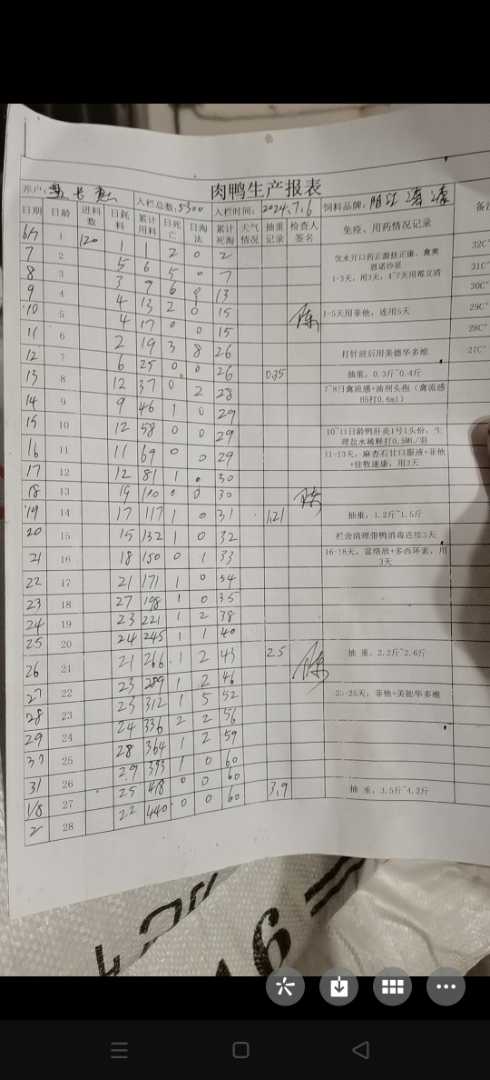 肉鸭生产报表
入栏总数: 5300 入栏时间: 2024.7.6 饲料品牌:
日期 日龄 进料数 日耗料 累计用料 日死亡 日淘汰 累计死淘 天气情况 抽重记录 检查人签名 免疫、用药情况记录
6/7 1 120 1 2 0 2 32C°
7 2 5 6 5 0 7
8 3 3 9 6 0 13 1-3天，用3天，4~7天用霉立清 31C°
9 4 4 13 2 0 15 30C°
10 5 4 17 0 0 15 陈 1-5天用菲他，连用5天 29C°
11 6 2 19 3 8 26 28C°
12 7 6 25 0 0 26 0.35 打针前后用美德华多维 27C°
13 8 12 37 0 2 28 抽重，0.3斤~0.4斤
14 9 9 46 1 0 29 7~8日禽流感+油剂头孢（禽流感H5打0.6ml）
15 10 12 58 0 0 29
16 11 11 69 0 0 29 10~11日龄鸭肝炎1号1头份，生理盐水稀释打0.5ML/羽
17 12 12 81 1 0 30
18 13 19 100 0 0 30 陈
19 14 17 117 1 0 31 1.21 抽重，1.2斤~1.5斤
20 15 15 132 1 0 32 栏舍清理带鸭消毒连续3天
21 16 18 150 0 1 33
22 17 21 171 1 0 34
23 18 27 198 1 0 35
24 19 23 221 1 2 38
25 20 24 245 1 1 40
26 21 21 266 1 2 43 2.5 陈 抽 重，2.2斤~2.6斤
27 22 23 289 1 2 46
28 23 23 312 1 5 52
29 24 24 336 2 2 56
30 25 28 364 1 2 59
31 26 29 393 1 0 60
1/8 27 25 418 0 0 60
2 28 22 440 0 0 60 3.9 抽 重，3.5斤~4.2斤